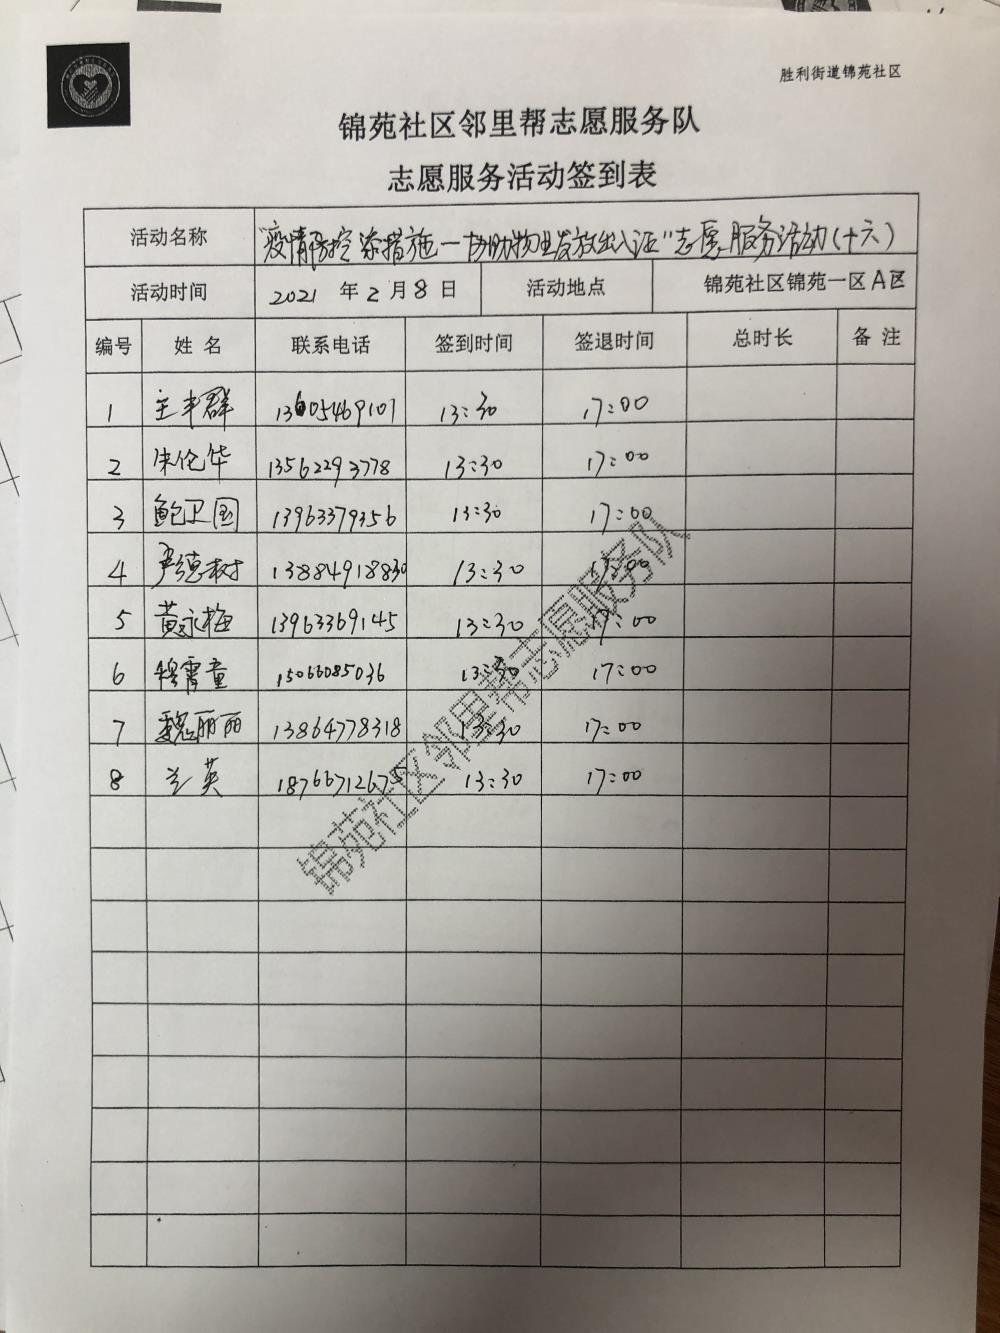 胜利街道锦苑社区
锦苑社区邻里帮志愿服务队
志愿服务活动签到表
活动名称 "疫情防控添措施一协助物业发放出入证"志愿服务活动(十六)
活动时间 2021 年 2 月 8 日 活动地点 锦苑社区锦苑一区A区
编号 姓 名 联系电话 签到时间 签退时间 总时长 备 注
1 13605469107 13:30 17:00
2 朱伦华 13562293778 13:30 17:00
3 鲍卫国 13963379356 13:30 17:00
4 严德树 13884918830 13:30 17:00
5 黄永梅 13963369145 13:30 17:00
6 穆霄童 15066085036 13:30 17:00
7 魏丽丽 13864778318 13:30 17:00
8 兰英 18766712675 13:30 17:00
锦苑社区邻里帮志愿服务队